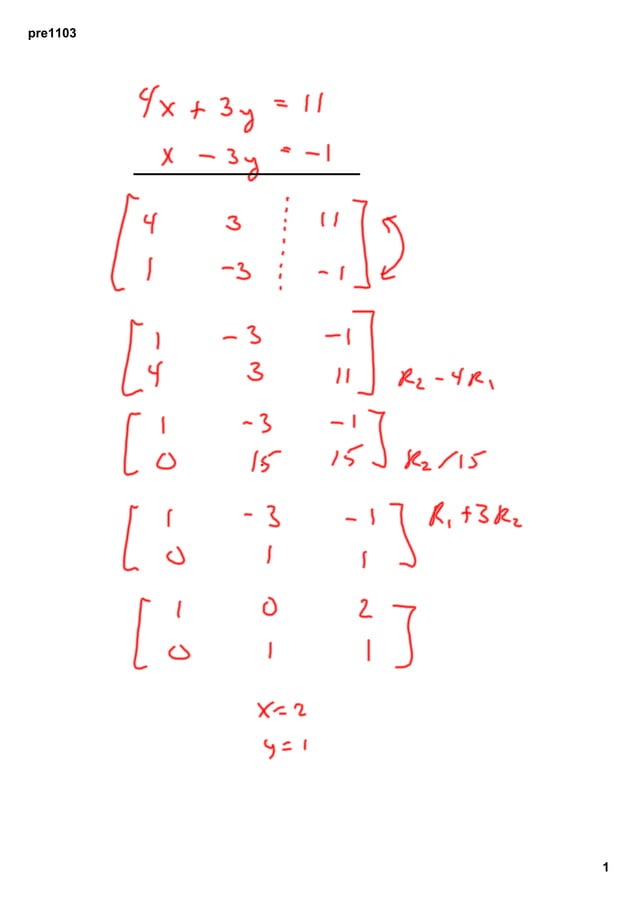 pre1103
4x + 3y = 11
x - 3y = -1
[ 4 3 11 ]
[ 1 -3 -1 ]
[ 1 -3 -1 ]
[ 4 3 11 ] R₂ - 4R₁
[ 1 -3 -1 ]
[ 0 15 15 ] R₂/15
[ 1 -3 -1 ] R₁ + 3R₂
[ 0 1 1 ]
[ 1 0 2 ]
[ 0 1 1 ]
x = 2
y = 1
1